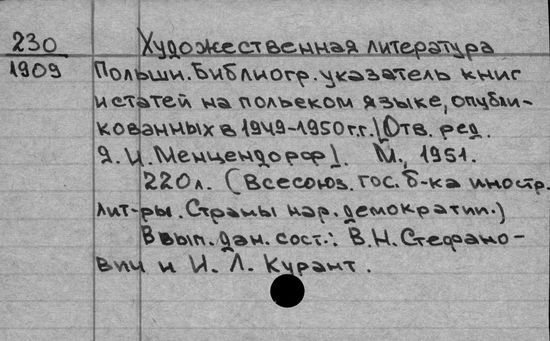 230 Художественная литература
1909 Польши. Библиогр. указатель книг
и статей на польском языке, опубли-
кованных в 1949-1950г.г. [Отв. ред.
Я. И. Менцендорф]. М., 1951.
220л. (Всесоюз. гос. б-ка иностр.
лит-ры. Страны нар. демократии.)
В вып. дан. сост.: В.Н. Стефано-
вич и И. Л. Курант.